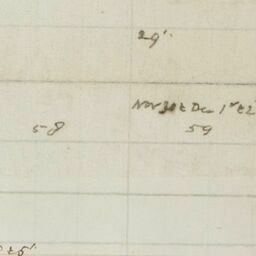 29'
Nov 30 & Dec 1st & 2
58 59
& 5'